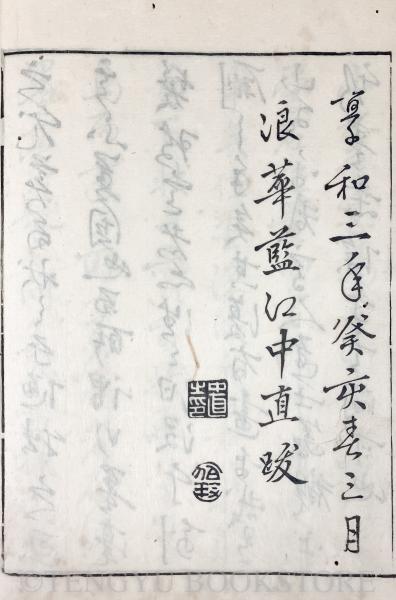 享和三年癸亥春三月
浪華藍江中直跋
©HENGYU BOOKSTORE